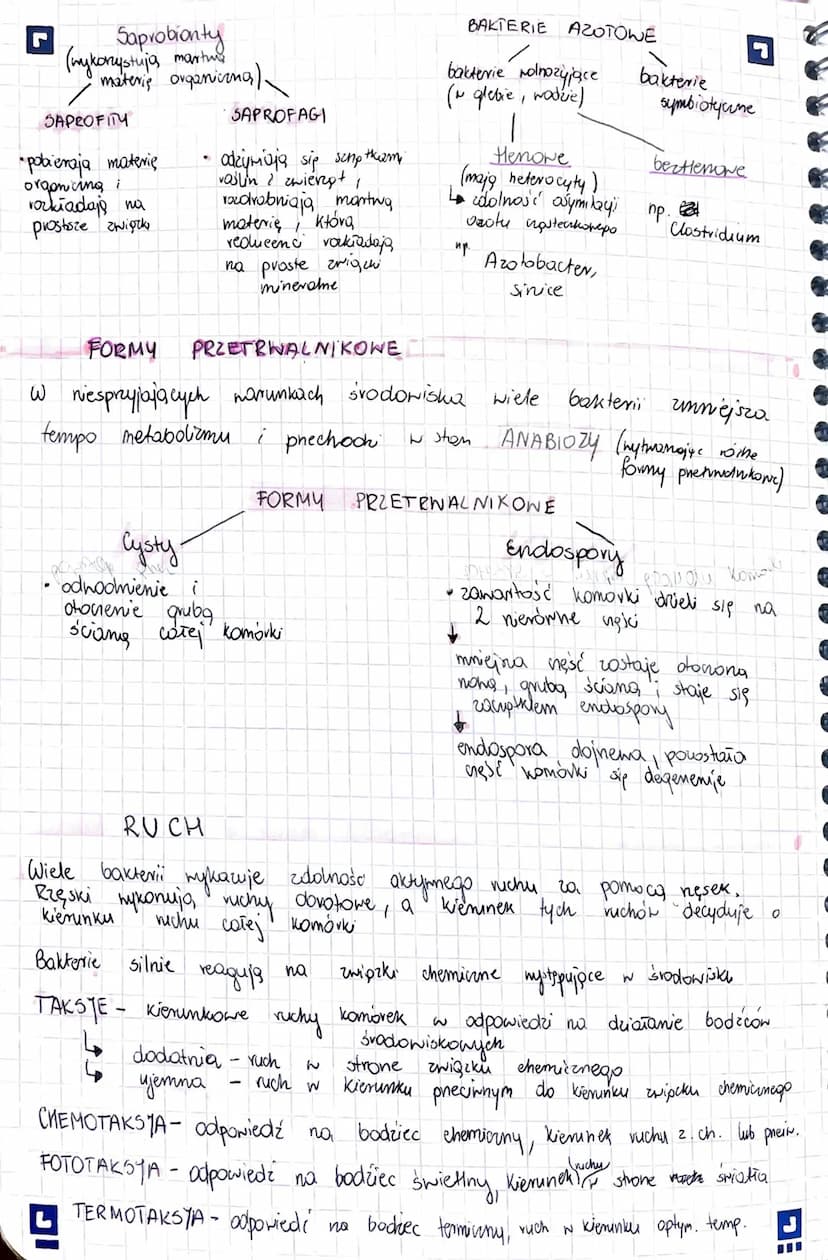 Saprobionty
(wykorzystują martwą
materię organiczną)
SAPROFITY
• pobierają materię
organiczną i
rozkładają na
prostsze związki
SAPROFAGI
• odżywiają się szczątkami
roślin i zwierząt,
rozdrabniają martwą
materię, którą
reducenci rozkładają
na proste związki
mineralne
BAKTERIE AZOTOWE
bakterie wolnożyjące
(w glebie, wodzie)
bakterie
symbiotyczne
tlenowe
(mają heterocyty)
↳ zdolność asymilacji
azotu cząsteczkowego
np.
Azotobacter,
sinice
beztlenowe
np.
Clostridium
FORMY PRZETRWALNIKOWE
W niesprzyjających warunkach środowiska wiele bakterii zmniejsza
tempo metabolizmu i przechodzi w stan ANABIOZY (wytwarzając różne
formy przetrwalnikowe)
FORMY PRZETRWALNIKOWE
Cysty
• odwodnienie i
otoczenie grubą
ścianą całej komórki
Endospory
• zawartość komórki dzieli się na
2 nierówne części
↓
mniejsza część zostaje otoczona
nową, grubą ścianą i staje się
zaczątkiem endospory
↓
endospora dojrzewa, pozostała
część komórki się degeneruje
RUCH
Wiele bakterii wykazuje zdolność aktywnego ruchu za pomocą rzęsek.
Rzęski wykonują ruchy obrotowe, a kierunek tych ruchów decyduje o
kierunku ruchu całej komórki
Bakterie silnie reagują na związki chemiczne występujące w środowisku
TAKSJE - kierunkowe ruchy komórek w odpowiedzi na działanie bodźców
środowiskowych
↳ dodatnia - ruch w strone związku chemicznego
↳ ujemna - ruch w kierunku przeciwnym do kierunku związku chemicznego
CHEMOTAKSJA - odpowiedź na bodziec chemiczny, kierunek ruchu z. ch. lub przeciw.
FOTOTAKSJA - odpowiedź na bodziec świetlny, kierunek ruchu w strone światła
TERMOTAKSJA - odpowiedź na bodziec termiczny, ruch w kierunku optym. temp.